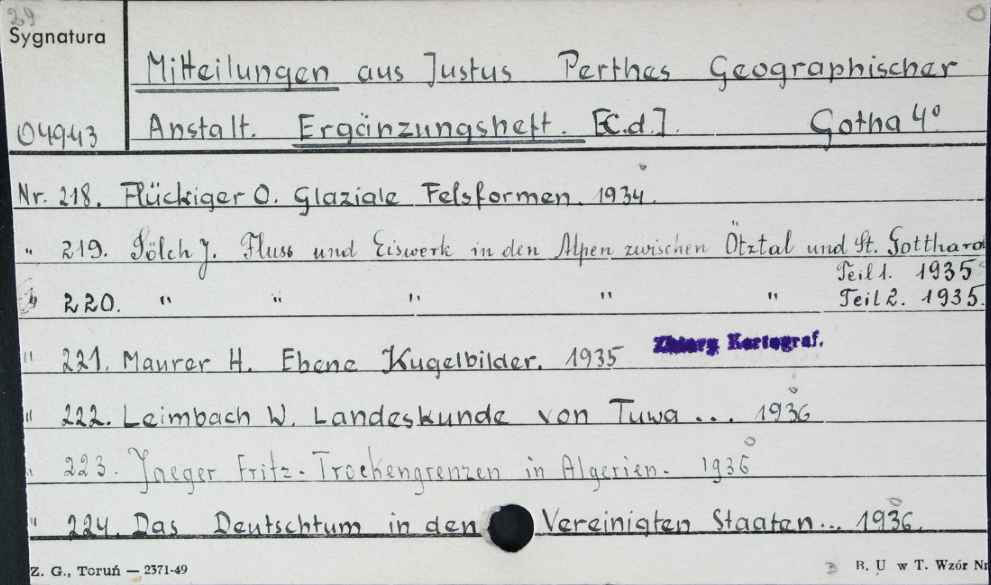 29
Sygnatura
Mitteilungen aus Justus Perthes Geographischer
04943 Anstalt. Ergänzungsheft. [C.d.]. Gotha 4°
Nr. 218. Flückiger O. Glaziale Felsformen. 1934.
" 219. Sölch J. Fluss und Eiswerk in den Alpen zwischen Ötztal und St. Gotthard
Teil 1. 1935
" 220. " " " " " Teil 2. 1935.
" 221. Maurer H. Ebene Kugelbilder. 1935 Zbiory Kartograf.
" 222. Leimbach W. Landeskunde von Tuwa ... 1936
" 223. Jaeger Fritz - Trockengrenzen in Algerien. 1936
" 224. Das Deutschtum in den Vereinigten Staaten... 1936.
Z. G., Toruń — 2371-49 B. U w T. Wzór Nr